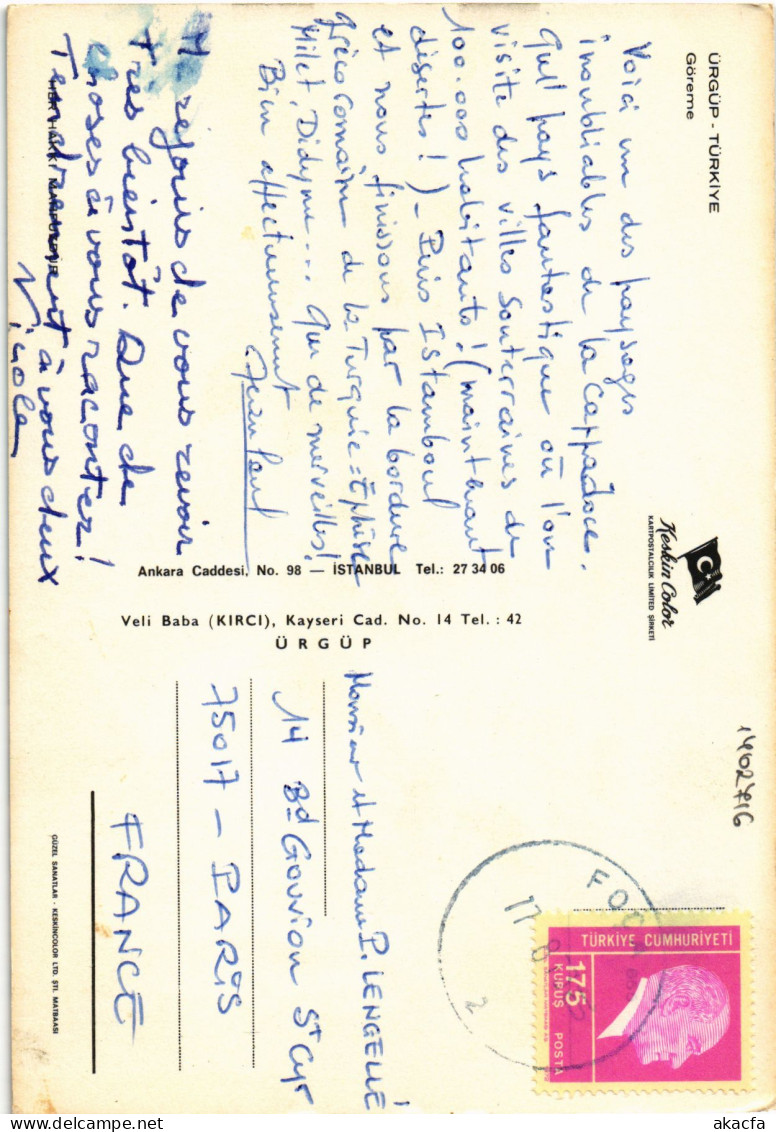 ÜRGÜP - TÜRKİYE
Göreme
Voici un des paysages
inoubliables de la Cappadoce.
Quel pays fantastique où l'on
visite des villes souterraines de
100.000 habitants! (maintenant
désertes!) - Puis Istamboul
et nous finissons par la bordure
gréco romaine de la Turquie = Ephèse
Milet, Didyme... Que de merveilles!
Bien affectueusement
Jean Paul
Me rejouis de vous revoir
très bientôt. Que de
choses à vous raconter!
Tendrement à vous deux
Nicole
HER HAKKI MAHFUZDUR
Keskin Color
KARTPOSTALCILIK LIMITED ŞİRKETİ
Ankara Caddesi, No. 98 — İSTANBUL Tel.: 27 34 06
Veli Baba (KIRCI), Kayseri Cad. No. 14 Tel. : 42
ÜRGÜP
Monsieur et Madame P. LENGELLÉ
14 Bd Gouvion St Cyr
75017 - PARIS
FRANCE
GÜZEL SANATLAR - KESKİNCOLOR LTD. ŞTİ. MATBAASI
1402716
FOÇA
17 8
2
TÜRKİYE CUMHURİYETİ
175
KURUŞ POSTA
www.akacfa.com
akacfa